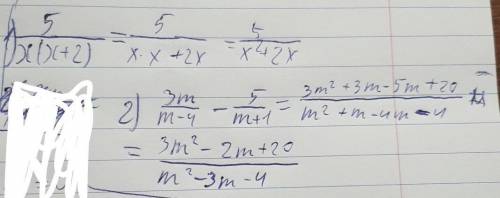 1) 5/(x(x+2)) = 5/(x·x+2x) = 5/(x²+2x)
2) 3m/(m-4) - 5/(m+1) = (3m²+3m-5m+20)/(m²+m-4m-4)
= (3m²-2m+20)/(m²-3m-4)